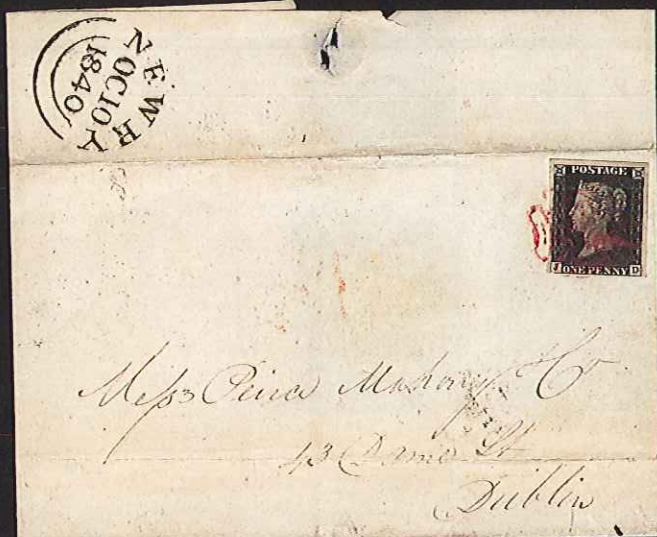 NEWRY
OC10
1840
POSTAGE
J ONE PENNY D
Mess Peirce Mahony & Co
43 Dame St
Dublin